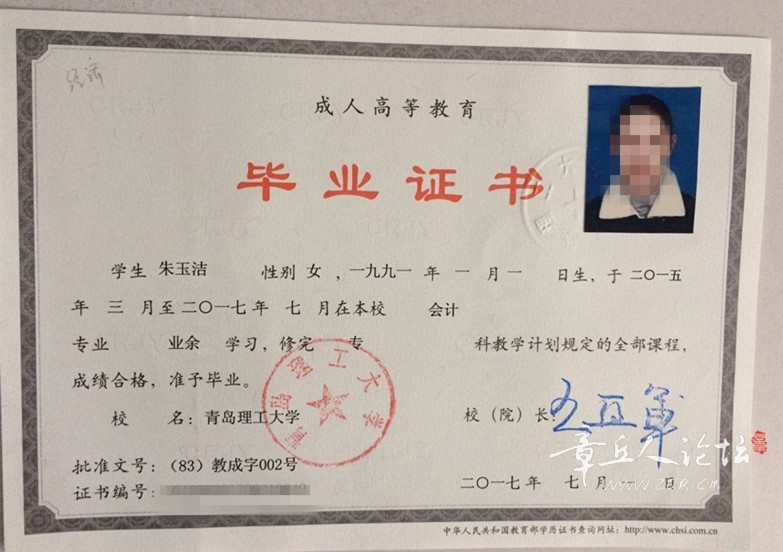 经济
成人高等教育
毕业证书
学生 朱玉洁 性别 女 ，一九九一 年 一 月 一 日生，于 二〇一五
年 三 月至 二〇一七 年 七 月在本校 会计
专业 业余 学习，修完 专 科教学计划规定的全部课程，
成绩合格，准予毕业。
校 名：青岛理工大学
校（院）长：
青岛理工大学
批准文号：（83）教成字002号
证书编号：
二〇一七年 七 月 一 日
章丘人论坛
中华人民共和国教育部学历证书查询网址：http://www.chsi.com.cn